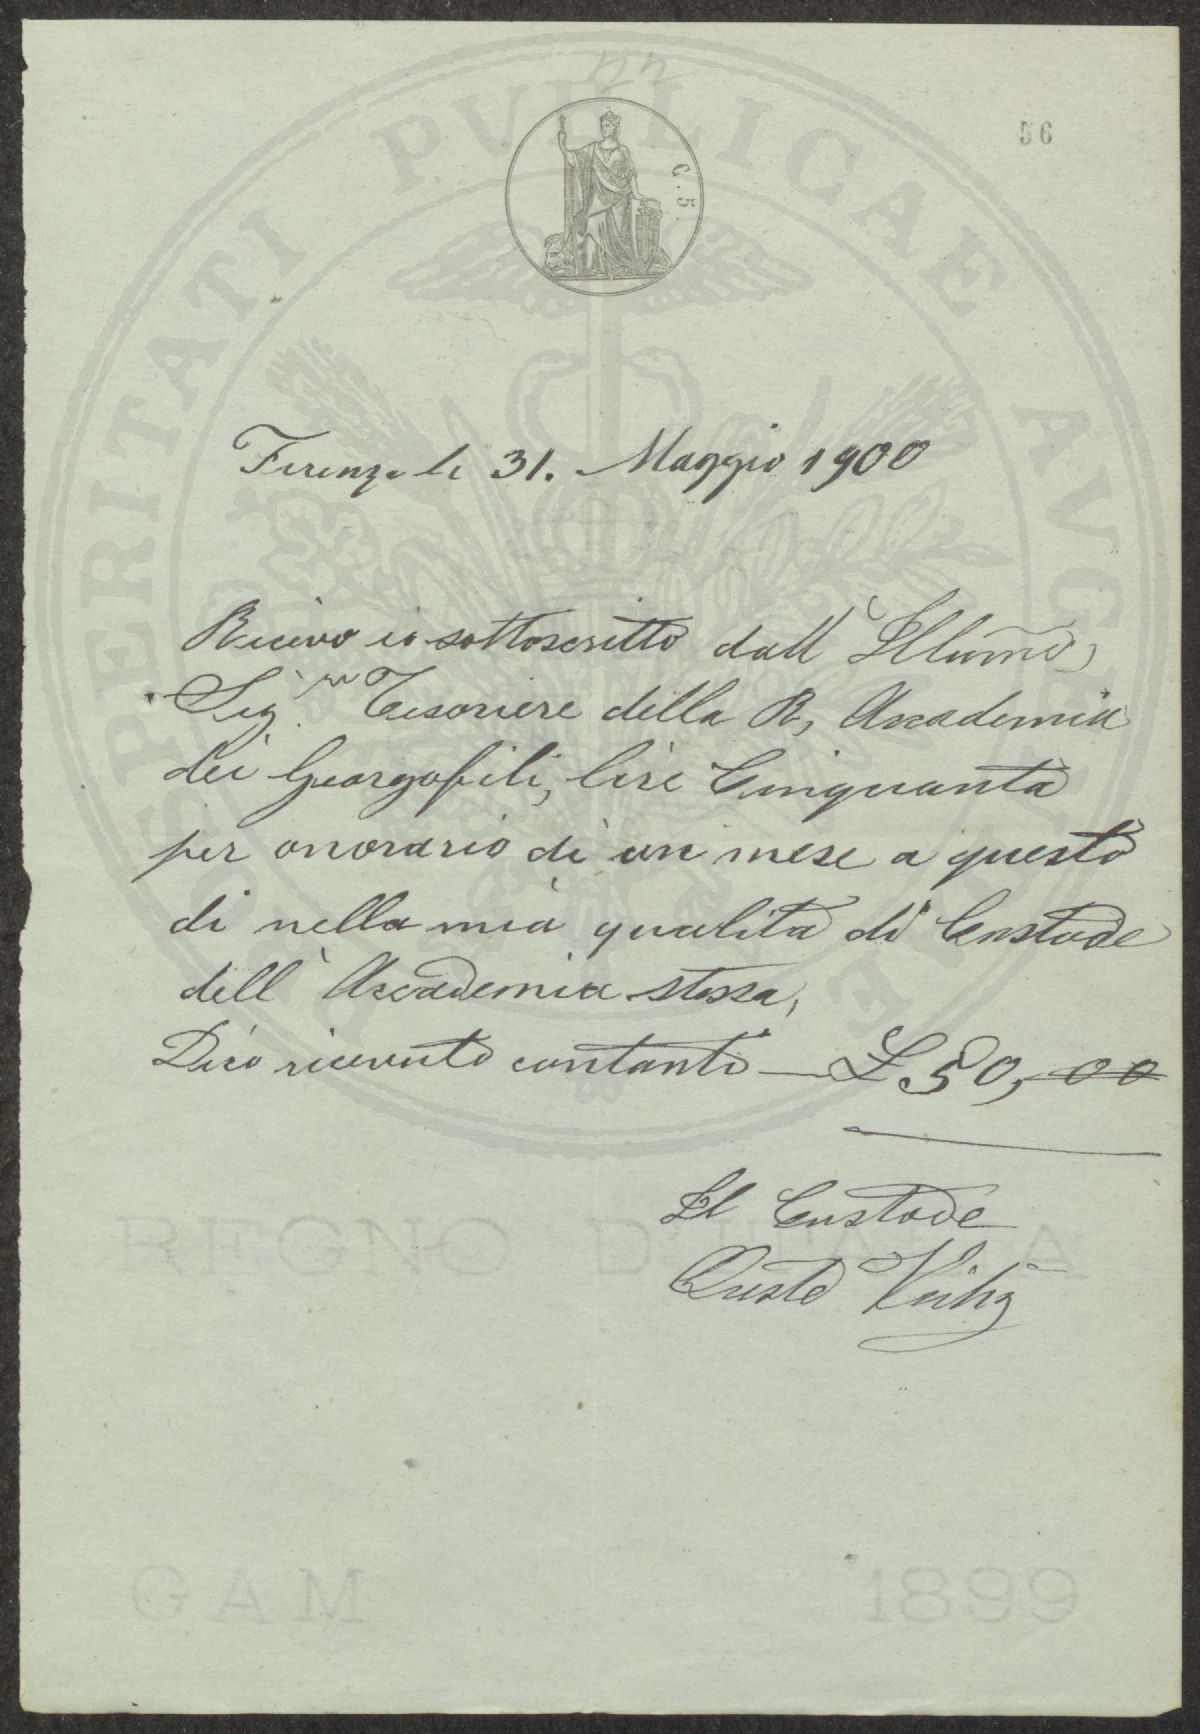 44
56
C. 5.
PROSPERITATI PUBLICAE AVGENDAE
Firenze li 31. Maggio 1900
Ricevo io sottoscritto dall' Illumo,
Sigr. Tesoriere della R, Accademia
dei Georgofili, lire Cinquanta
per onorario di un mese a questo
dì nella mia qualità di Custode
dell' Accademia stessa,
Dico ricevuto contanti — L 50,00
Il Custode
REGNO D'ITALIA
GAM 1899